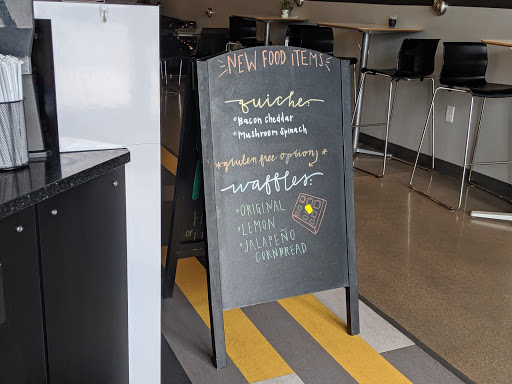 NEW FOOD ITEMS
quiche
*Bacon cheddar
*Mushroom Spinach
*gluten free option*
waffles:
*ORIGINAL
*LEMON
*JALAPEÑO
CORNBREAD